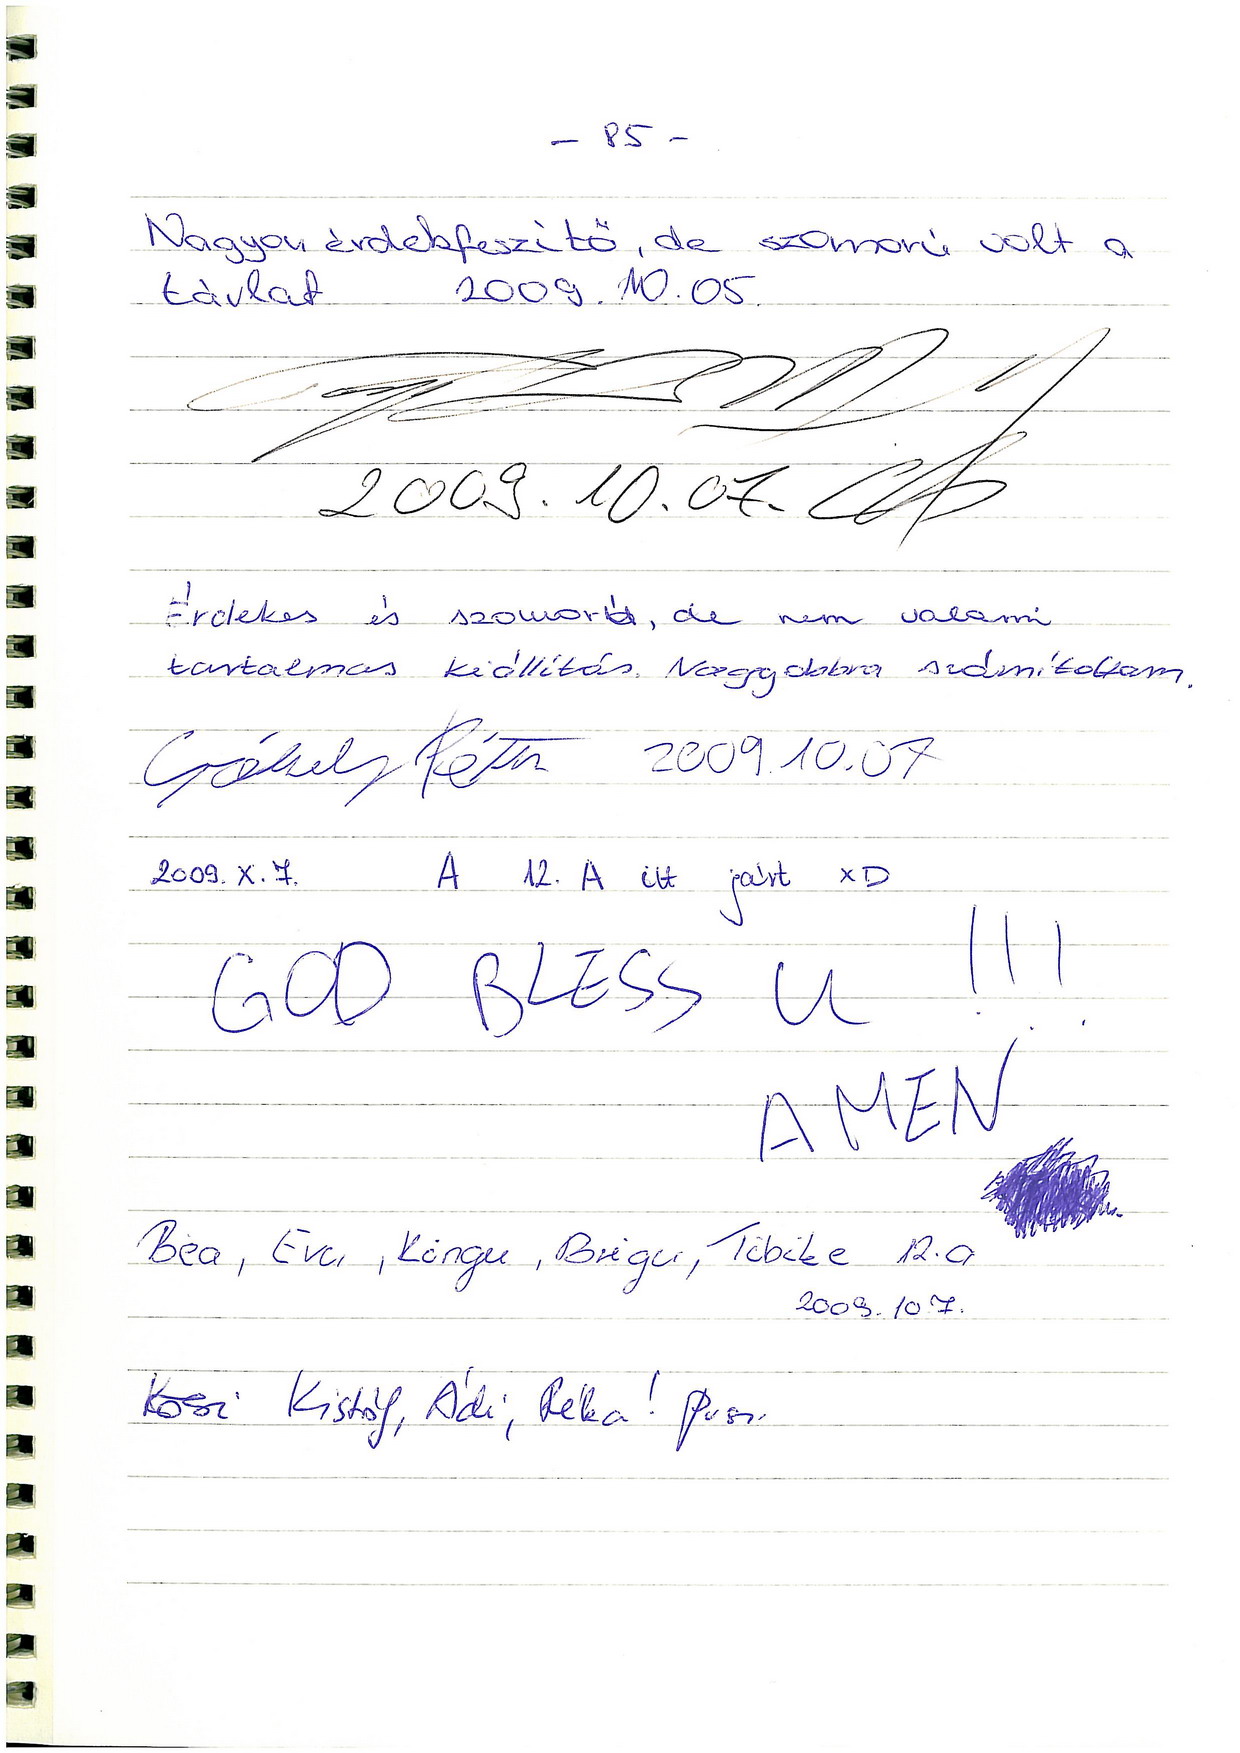 - 85 -
Nagyon érdekfeszítő, de szomorú volt a
távlat 2009.10.05.
2009.10.07.
Érdekes és szomorú, de nem valami
tartalmas kiállítás. Nagyobbra számítottam.
2009.10.07
2009. X. 7. A 12. A itt járt xD
GOD BLESS U !!!
AMEN
Bea, Eva, Kinga, Brigu, Tibike 12.a
2009.10.7.
Kistóf, Ádi, Réka!